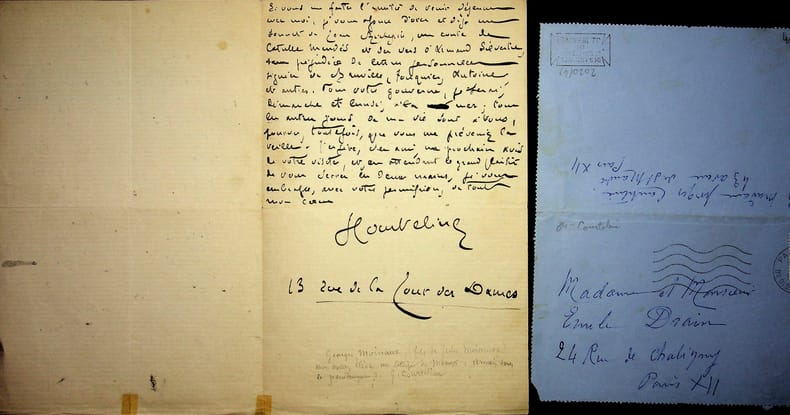 Si vous me faites l'amitié de venir déjeuner
avec moi, je vous offrirai d'ores et déjà un
sonnet de Jean Richepin, un conte de
Catulle Mendès et des vers d'Armand Silvestre,
sans préjudice de lettres
signées de Banville, Fouquier, Antoine
et autres. Pour votre gouverne,
Dimanche et Lundi, à la mer; tous
les autres jours de ma vie sont à vous,
pourvu, toutefois, que vous me préveniez la
veille. J'espère, cher ami un prochain avis
de votre visite, et, en attendant le grand plaisir
de vous serrer les deux mains, je vous
embrasse, avec votre permission, de tout
mon cœur
GCourteline
13 rue de la Tour des Dames
Georges Moinaux: fils de Jules Moinaux
mon élève au collège de Meaux:
le pseudonyme G. Courteline
Madame Georges Courteline
43 avenue de St Mandé
Paris XII
Courteline
Madame et Monsieur
Emile Drain
24 Rue de Chaligny
Paris XII